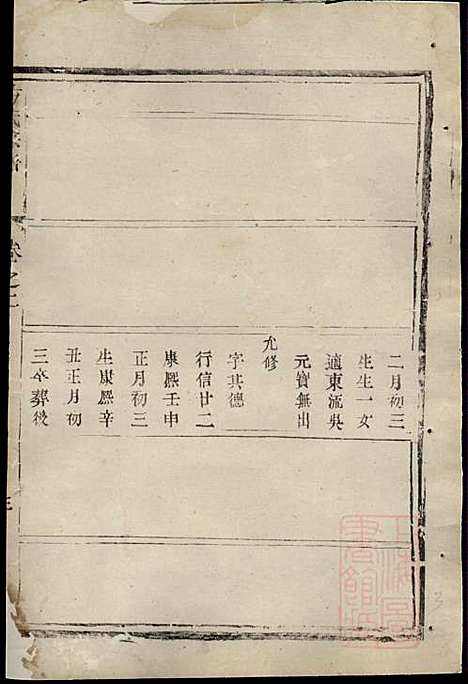 二月初三
生生一女
適東流吳
元寶無出
允修
字其德
行信廿二
康熙壬申
正月初三
生康熙辛
丑正月初
三卒葬後
氏宗
卷之二